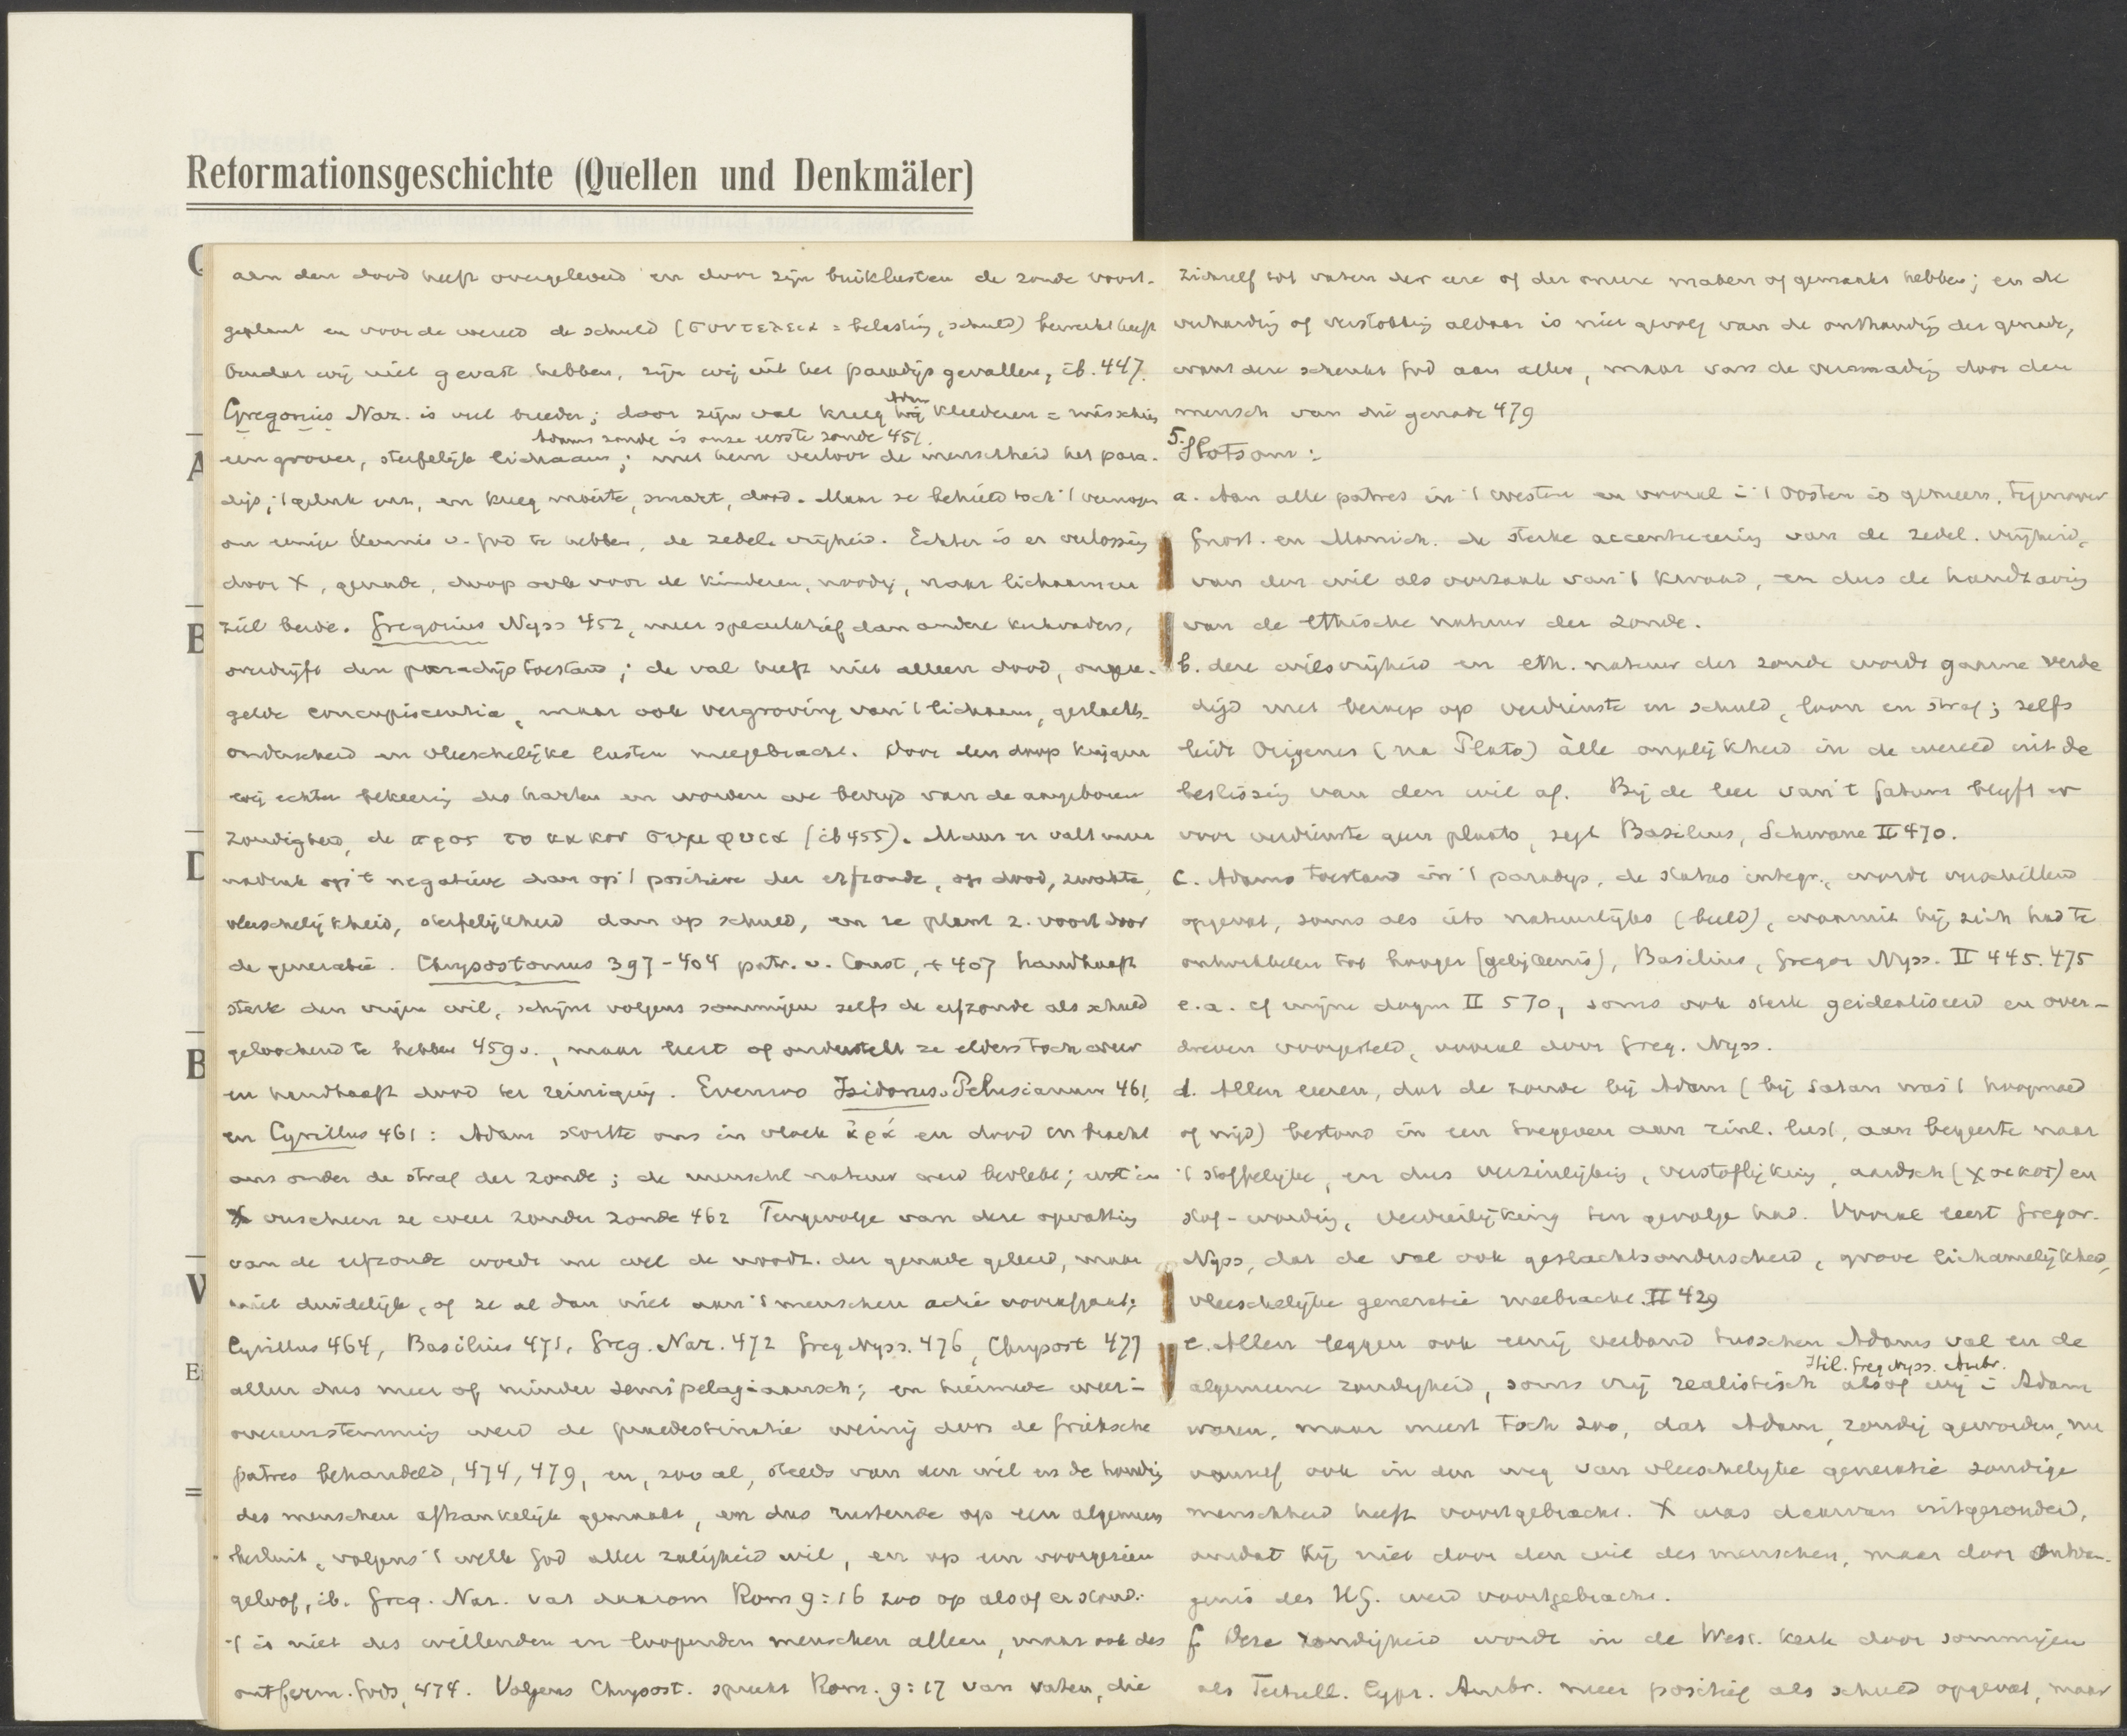 Reformationsgeschichte (Quellen und Denkmäler)
aan den dood heeft overgeleverd en door zijn buiklusten de zonde voort-
geplant en voor de wereld de schuld (συντελεια = belasting, schuld) bewerkt heeft
Omdat wij niet gevast hebben, zijn wij uit het paradijs gevallen, ib. 447.
Adam
Gregorius Naz. is veel breeder; door zijn val kreeg hij kleederen = misschien
Adams zonde is onze eerste zonde 451.
een grover, sterfelijk lichaam; met hem verloor de menschheid het para-
dijs, 't geluk enz, en kreeg moeite, smart, dood. Maar ze behield toch 't vermogen
om eenige kennis v. God te hebben, de zedel. vrijheid. Echter is er verlossing
door X, genade, doop ook voor de kinderen, noodig, naar lichaam en
ziel beide. Gregorius Nyss 452, meer speculatief dan andere kerkvaders,
overdrijft den paradijstoestand; de val heeft niet alleen dood, ongere-
gelde concupiscentia, maar ook vergroving van 't lichaam, geslachts-
onderscheid en vleeschelijke lusten meegebracht. Door den doop krijgen
wij echter bekeering des harten en worden we bevrijd van de aangeboren
zondigheid, de προσ το κακον συμφυια (ib 455). Maar er valt meer
nadruk op 't negatieve dan op 't positieve der erfzonde, op dood, zwakte,
vleeschelijkheid, sterfelijkheid dan op schuld, en ze plant z. voort door
de generatie. Chrysostomus 397-404 patr. v. Const, + 407 handhaaft
sterk den vrijen wil, schijnt volgens sommigen zelfs de erfzonde als schuld
geloochend te hebben 459v., maar leert of onderstelt ze elders toch weer
en handhaaft dood ter reiniging. Evenzoo Isidorus v. Pelusianum 461,
en Cyrillus 461: Adam stortte ons in vloek ἀρά en dood en bracht
ons onder de straf der zonde; de menschl natuur werd bevlekt; eerst in
X verscheen ze weer zonder zonde 462 Tengevolge van deze opvatting
van de erfzonde wordt nu wel de noodz. der genade geleerd, maar
niet duidelijk, of ze al dan niet aan 's menschen actie voorafgaat;
Cyrillus 464, Basilius 471, Greg. Naz. 472 Greg Nyss. 476, Chrysost 477
allen dus meer of minder semipelagiaansch; en hiermede
overeenstemming werd de praedestinatie weinig door de Grieksche
patres behandeld, 474, 479, en, zoo al, steeds van den wil en de handeling
des menschen afhankelijk gemaakt, en dus rustende op een algemeen
besluit, volgens 't welk God aller zaligheid wil, en op een voorgezien
geloof, ib. Greg. Naz. vat daarom Rom 9:16 zoo op alsof er stond:
't is niet des willenden en loopenden menschen alleen, maar ook des
ontferm. Gods, 474. Volgens Chrysost. spreekt Rom. 9:17 van vaten, die
zichzelf tot vaten der eere of der oneere maken of gemaakt hebben; en de
verharding of verstokking aldaar is niet gevolg van de onthouding der genade,
want deze schenkt God aan allen, maar van de versmading door den
mensch van die genade 479
5. Slotsom:
a. Aan alle patres in 't westen en vooral i 't Oosten is gemeen, tegenover
Gnost. en Manich. de sterke accentueering van de zedel. vrijheid,
van den wil als oorzaak van 't kwaad, en dus de handhaving
van de ethische natuur der zonde.
b. deze wilsvrijheid en eth. natuur der zonde wordt gaarne verde
digd met beroep op verdienste en schuld, loon en straf; zelfs
leidt Origenes (na Plato) àlle ongelijkheid in de wereld uit de
beslissing van den wil af. Bij de leer van 't fatum blijft er
voor verdienste geen plaats, zegt Basilius, Schwane II 470.
c. Adams toestand in 't paradijs, de status integr., wordt verschillend
opgevat, soms als iets natuurlijks (beeld), waaruit hij zich had te
ontwikkelen tot hooger (gelijkenis), Basilius, Gregor Nyss. II 445. 475
e.a. cf mijne dogm II 570, soms ook sterk geidealiseerd en over-
dreven voorgesteld, vooral door Greg. Nyss.
d. Allen leeren, dat de zonde bij Adam (bij Satan was 't hoogmoed
of nijd) bestond in een toegeven aan zinl. lust, aan begeerte naar
't stoffelijke, en dus verzinlijking, verstoflijking, aardsch (χοικος) en
stof-wording, verdierlijking ten gevolge had. Vooral leert Gregor.
Nyss, dat de val ook geslachtsonderscheid, grove lichamelijkheid,
vleeschelijke generatie meebracht. II 429
e. Allen leggen ook eenig verband tusschen Adams val en de
Hil. Greg Nyss. Ambr.
algemeene zondigheid, soms vrij realistisch alsof wij i Adam
waren, maar meest toch zoo, dat Adam, zondig geworden, nu
vanzelf ook in den weg van vleeschelijke generatie zondige
menschheid heeft voortgebracht. X was daarvan uitgezonderd,
omdat Hij niet door den wil des menschen, maar door ontvan-
genis des HG. werd voortgebracht.
f. Deze zondigheid wordt in de West. kerk door sommigen
als Tertull. Cypr. Ambr. meer positief als schuld opgevat, maar